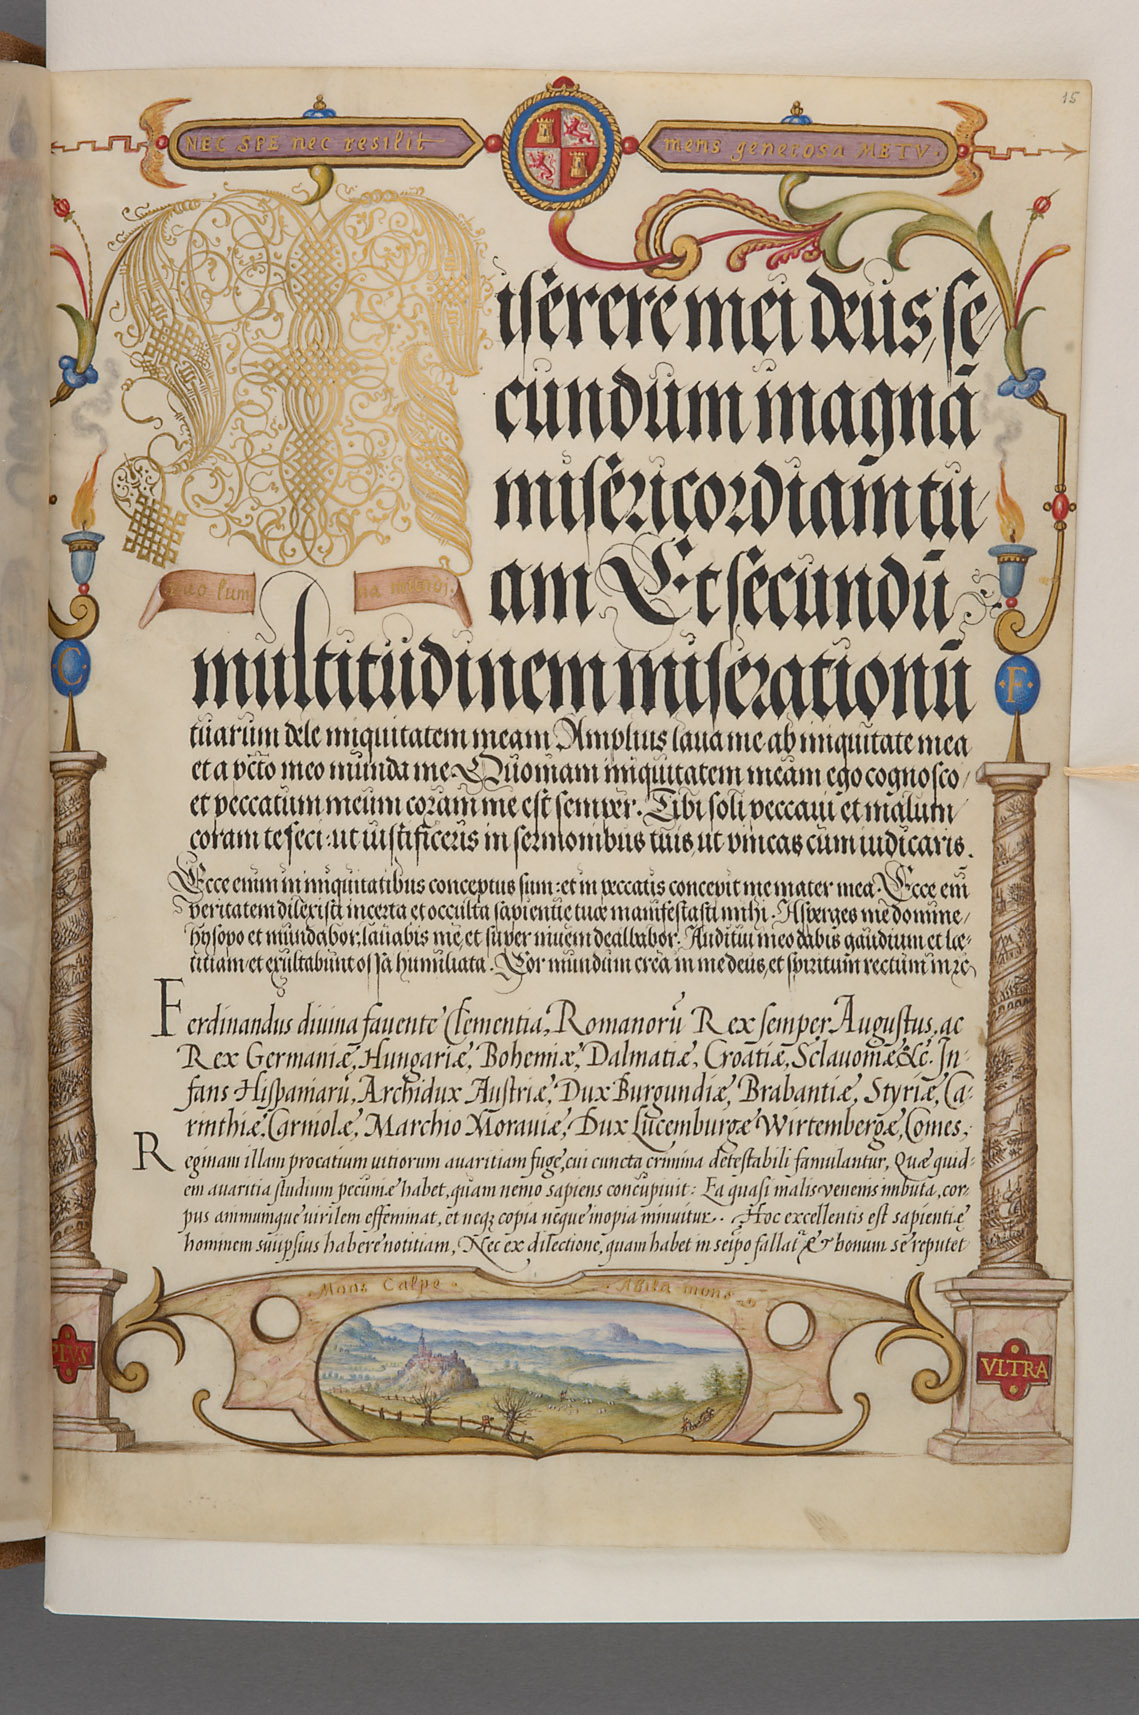 15
NEC SPE nec resilit
mens generosa METV.
Miserere mei deus, se
cundum magnā
misericordiam tu
am Et secundū
duo lumi na mundi
multitudinem miserationū
C
F
tuarum dele iniquitatem meam Amplius laua me ab iniquitate mea
et a pcc̄to meo munda me. Quoniam iniquitatem meam ego cognosco /
et peccatum meum coram me est semper. Tibi soli peccaui et malum
coram te feci: ut iustificeris in sermonibus tuis, ut vincas cum iudicaris.
Ecce enim in iniquitatibus conceptus sum: et in peccatis concepit me mater mea. Ecce eni̅
veritatem dilexisti incerta et occulta sapientie tuæ manifestasti mihi. Asperges me domine /
hysopo et mundabor, lauabis me, et super niuem dealbabor. Auditui meo dabis gaudium et læ-
titiam, et exultabunt ossa humiliata. Cor mundum crea in me deus, et spiritum rectum in re
Ferdinandus divina favente Clementia, Romanorū Rex semper Augustus, ac
Rex Germaniæ, Hungariæ, Bohemiæ, Dalmatiæ, Croatiæ, Sclauoniæ &c. In-
fans Hispaniarū, Archidux Austriæ, Dux Burgundiæ, Brabantiæ, Styriæ, Ca-
rinthiæ, Carniolæ, Marchio Morauiæ, Dux Lucemburgæ Wirtembergæ, Comes,
Reginam illam procatium uitiorum auaritiam fuge, cui cuncta crimina detestabili famulantur, Quæ quid-
em auaritia studium pecuniæ habet, quam nemo sapiens concupiuit: Ea quasi malis venenis imbuta, cor-
pus animumque uirilem effeminat, et neqȝ copia neque inopia minuitur. Hoc excellentis est sapientiæ
hominem suiipsius habere notitiam, Nec ex dilectione, quam habet in seipo fallat & bonum se reputet
Mons Calpe. Abila mons
PLVS
VLTRA